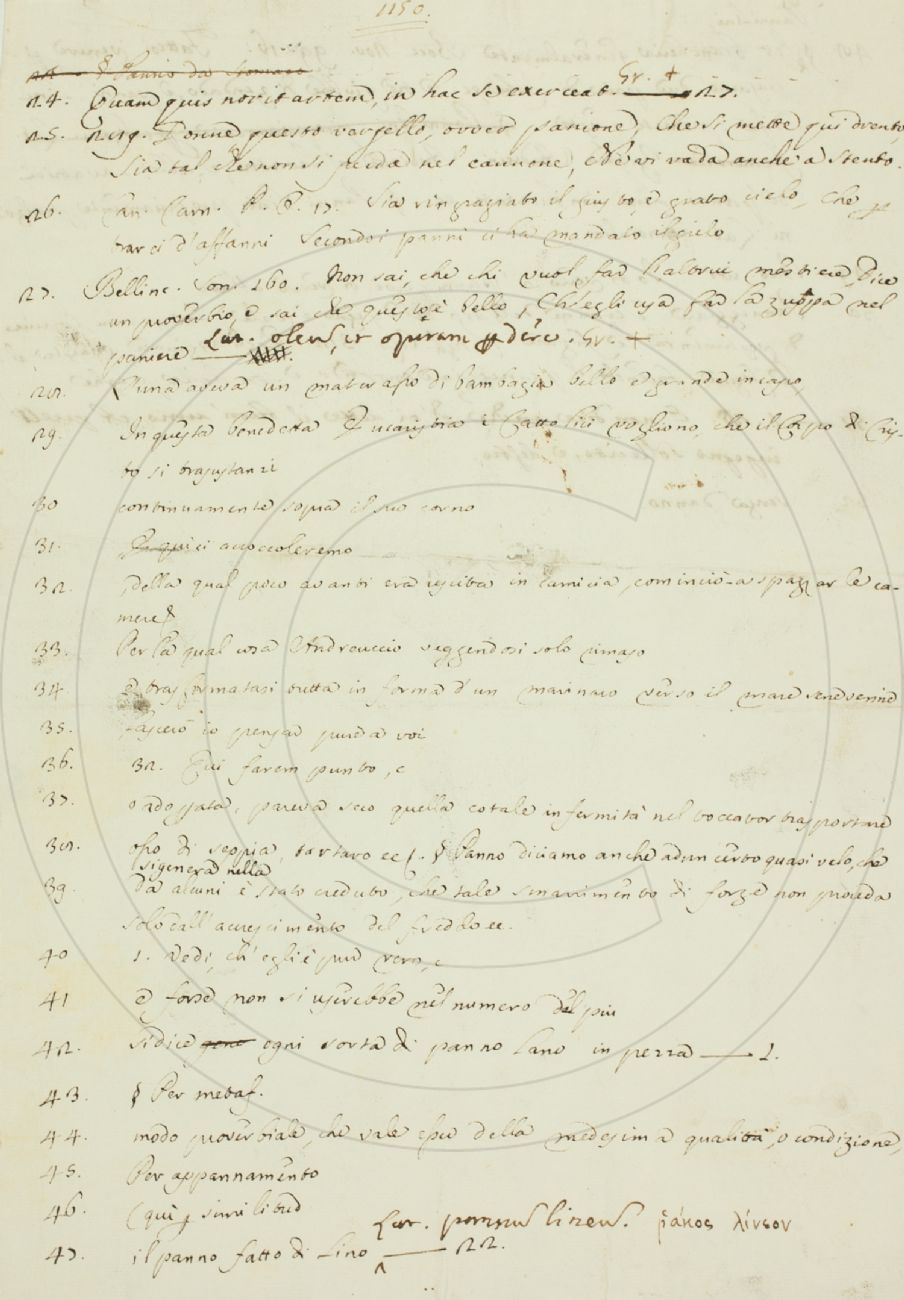 1150.
24. Quam quis norit artem, in hac se exerceat. Gr. + 27.
25. 219. Donne questo vergello, ovver panione, Che si mette qui drento,
Sia tal che non si pieda nel cannone, E vi vada anche a stento.
26. Can. Carn. P. P. 17. Sia ringraziato il giusto, e grato cielo, Che p
trarci d'affanni Secondo i panni ci ha mandato il gielo
27. Bellinc. Son. 260. Non sai, che chi vuol far l'altrui mestiere, Dice
un proverbio, e sai che questo è bello, Ch'egli usa far la zuppa nel
paniere Lat. oleum, et operam pdere. Gr. +
28. L'una aveva un materasso di bambagia bello e grande in capo,
29. In questa benedetta Eucaristia i Cattolici vogliono, che il Corpo di Cris-
to si trasustanzi
30 continuamente sopra il suo corno
31. E qui ci accoccoleremo
32. Della qual poco avanti era uscita in camicia, cominciò a spazzar le ca-
mere §
33. Per la qual cosa Andreuccio veggendosi solo rimaso
34. e trasformatasi tutta in forma d'un marinaro verso il mare se ne venne
35. lascerò io pensar pure a voi
36. 32. Qui farem punto, e
37. addossata, pareva seco quella cotale infermità nel toccator trasportare
38. osso di seppia, tartaro ec(. § Panno diciamo anche ad un certo quasi velo, che
si genera nella
39. Da alcuni è stato creduto, che tale smarrimento di forze non proceda
solo dall'accrescimento del freddo ec.
40 1. Vedi, ch'egli è pur vero, e
41 e forse non si userebbe nel numero del più
42. si dice gene ogni sorta di panno lano in pezza 1.
43. § Per metaf.
44. modo proverbiale, che vale esser della medesima qualità, o condizione,
45. Per appannamento
46. (qui p similitud
Lat. pannus lineus. ῥάκος λίνεον
47. il panno fatto di lino 22.